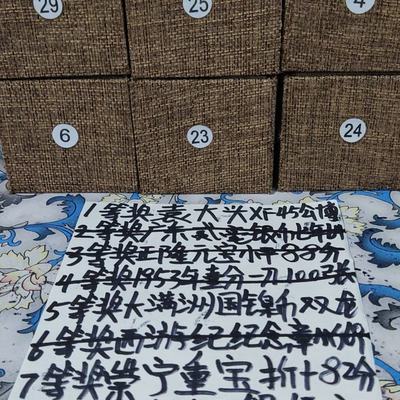 29 25 4
6 23 24
1等奖袁大头XF45公博
2等奖广东
3等奖正隆元宝小平88分
4等奖1953年壹分一九100张
5等奖大满洲国镍币双龙
6等奖西游纪纪念章
7等奖崇宁重宝折十82分